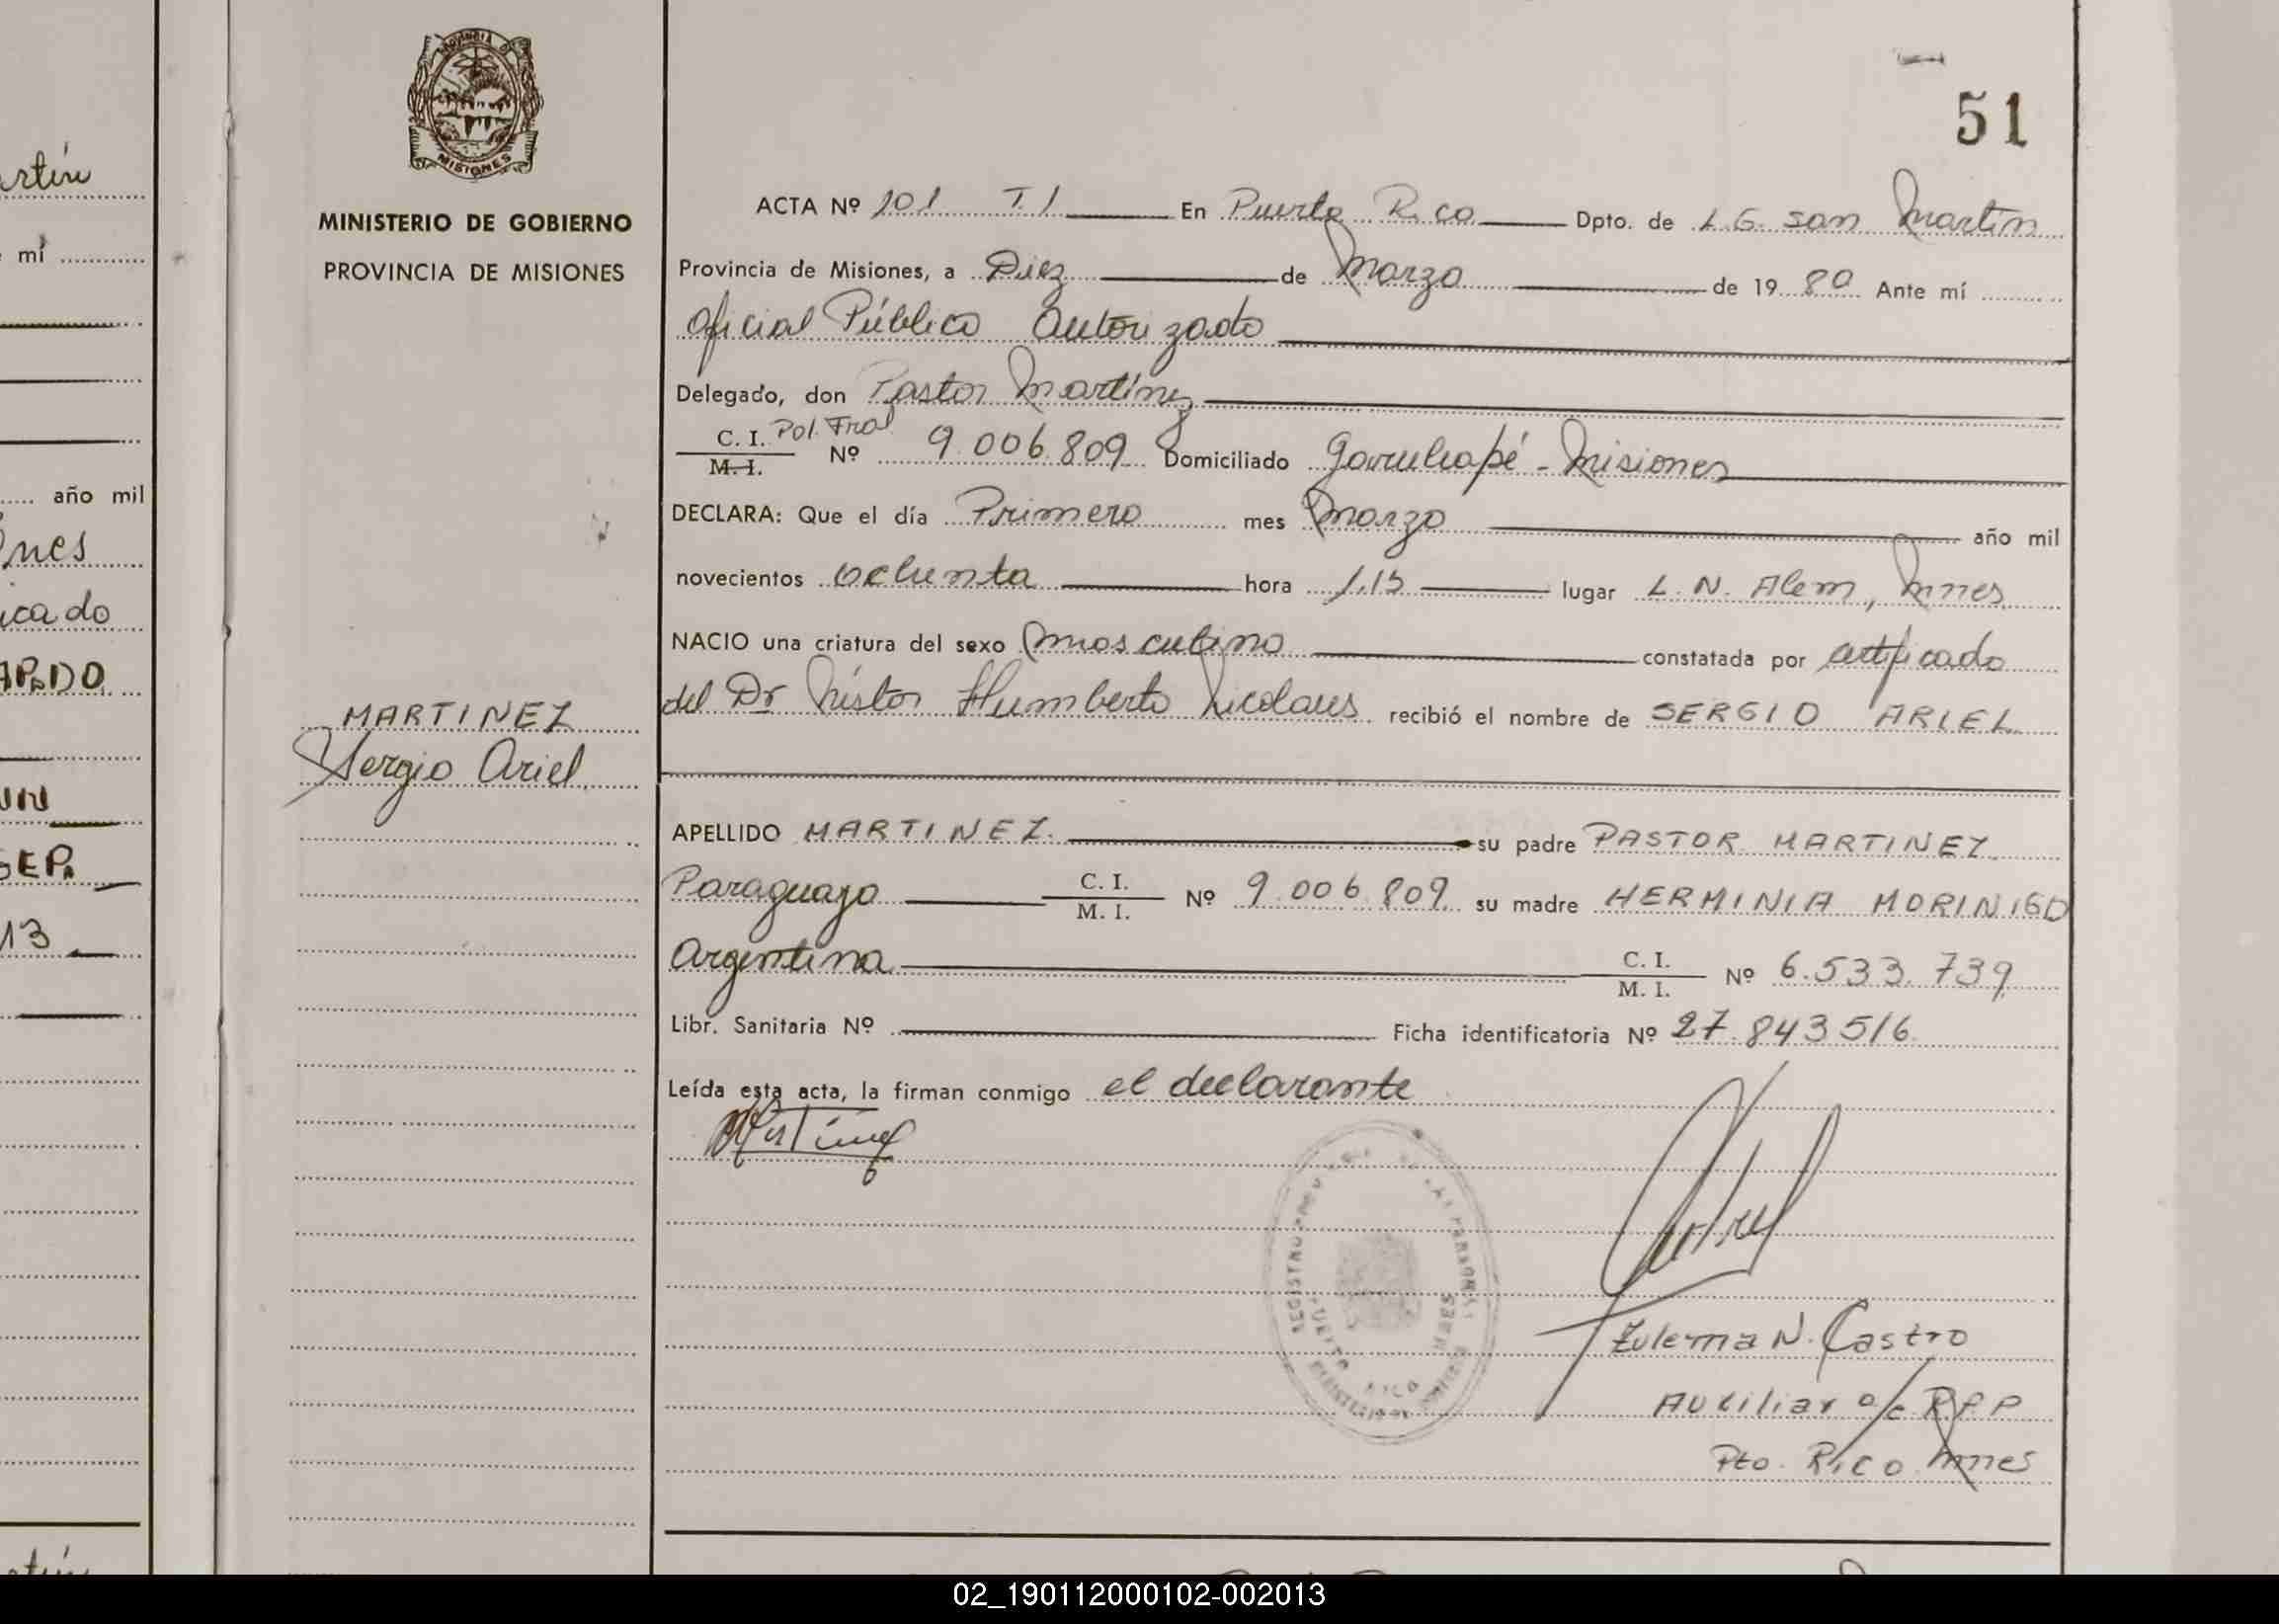 51
PROVINCIA D
MISIONES
MINISTERIO DE GOBIERNO
PROVINCIA DE MISIONES
MARTINEZ
Sergio Ariel
ACTA Nº 101 T. I En Puerto Rico Dpto. de L.G. San Martín
Provincia de Misiones, a Diez de Marzo de 1980 Ante mí
Oficial Público Autorizado
Delegado, don Pastor Martínez
C. I. Pol. Fral
M. I. Nº 9.006.809 Domiciliado Garuhapé - Misiones
DECLARA: Que el día Primero mes Marzo año mil
novecientos Ochenta hora 1,15 lugar L. N. Alem, Mnes
NACIO una criatura del sexo Masculino constatada por certificado
del Dr Néstor Humberto Nicolaus recibió el nombre de SERGIO ARIEL
APELLIDO MARTINEZ. su padre PASTOR MARTINEZ
Paraguayo C. I. M. I. Nº 9.006.809 su madre HERMINIA MORINIGO
Argentina C. I. M. I. Nº 6.533.739
Libr. Sanitaria Nº Ficha identificatoria Nº 27.843516
Leída esta acta, la firman conmigo el declarante
Zulema N. Castro
Auxiliar a/c RPP
Pto. Rico Mnes
REGISTRO PROV
PUERTO RICO
artín
mí
año mil
nes
icado
13
02_190112000102-002013